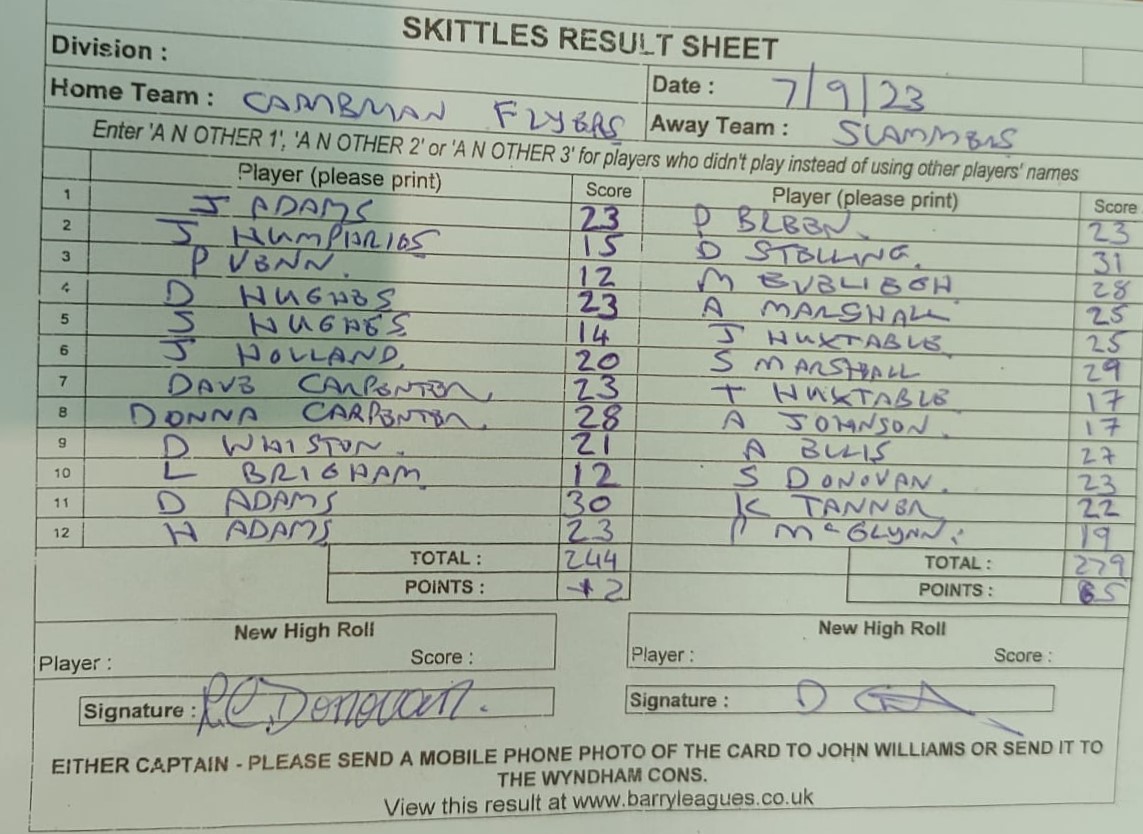 SKITTLES RESULT SHEET
Division :
Date : 7/9/23
Home Team : CAMBRIAN FLYERS
Away Team : SLAMMERS
Enter 'A N OTHER 1', 'A N OTHER 2' or 'A N OTHER 3' for players who didn't play instead of using other players' names
Player (please print) Score Player (please print) Score
1 J ADAMS 23 P BLEEN. 23
2 J HUMPHRIES 15 D STELLING. 31
3 P VENN. 12 M 28
4 D HUGHES 23 A MARSHALL 25
5 S HUGHES 14 J HUXTABLE 25
6 J HOLLAND. 20 S MARSHALL 29
7 DAVE CARPENTER. 23 T HUXTABLE 17
8 DONNA CARPENTER. 28 A JOHNSON. 17
9 D WHISTON. 21 A ELLIS 27
10 L BRIGHAM 12 S DONOVAN. 23
11 D ADAMS 30 K TANNER 22
12 H ADAMS 23 P McGLYNN. 19
TOTAL : 244 TOTAL : 279
POINTS : 2 POINTS : 5
New High Roll New High Roll
Player : Score : Player : Score :
Signature : R.C. Donovan. Signature : D
EITHER CAPTAIN - PLEASE SEND A MOBILE PHONE PHOTO OF THE CARD TO JOHN WILLIAMS OR SEND IT TO
THE WYNDHAM CONS.
View this result at www.barryleagues.co.uk